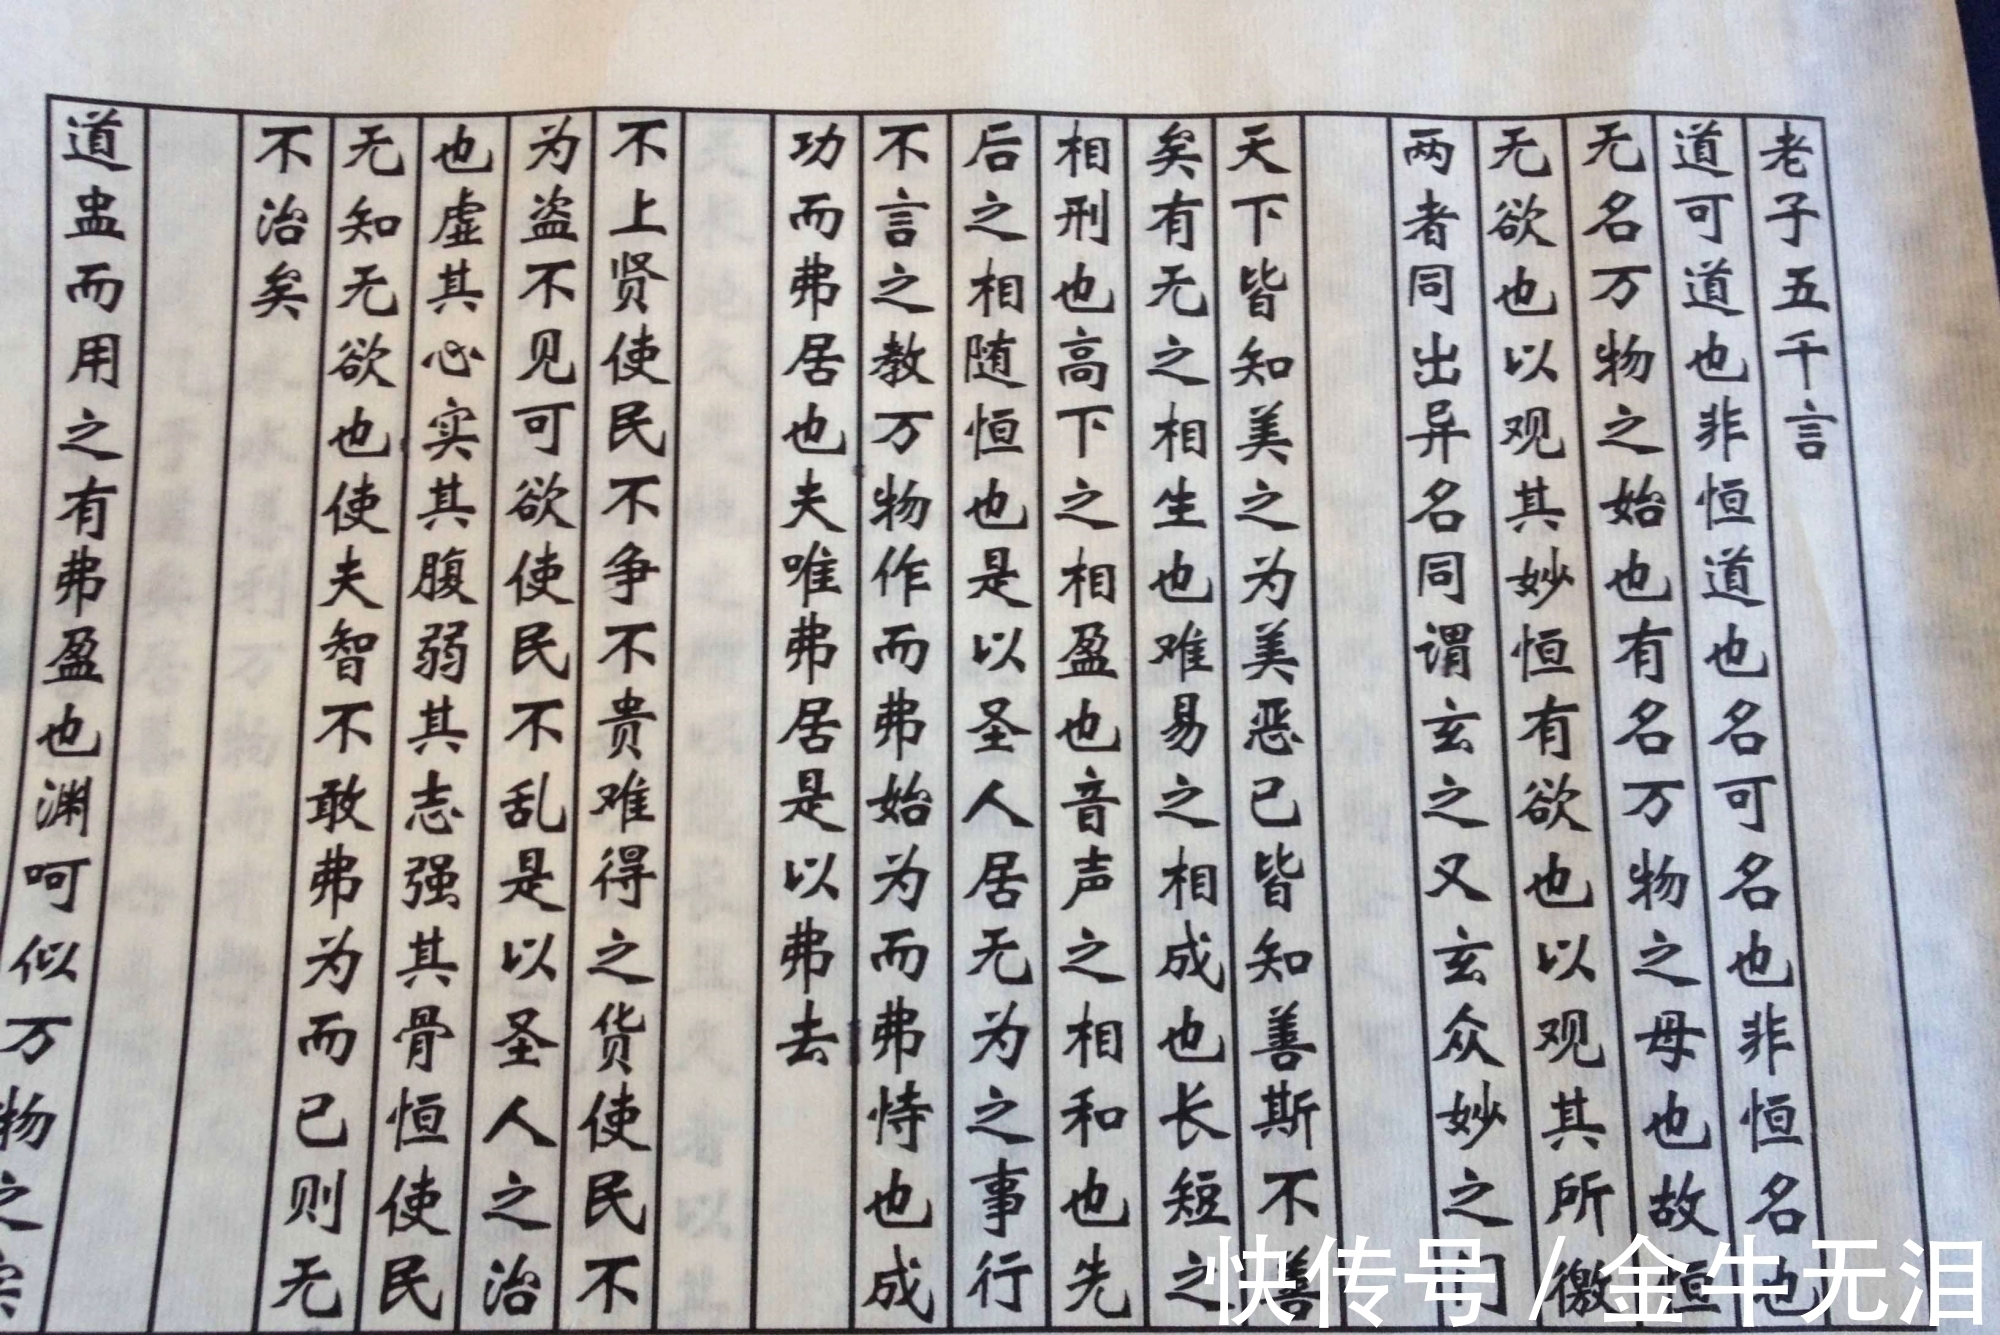 老子五千言
道可道也非恒道也名可名也非恒名也
无名万物之始也有名万物之母也故恒
无欲也以观其妙恒有欲也以观其所徼
两者同出异名同谓玄之又玄众妙之门
天下皆知美之为美恶已皆知善斯不善
矣有无之相生也难易之相成也长短之
相刑也高下之相盈也音声之相和也先
后之相随恒也是以圣人居无为之事行
不言之教万物作而弗始为而弗恃也成
功而弗居也夫唯弗居是以弗去
不上贤使民不争不贵难得之货使民不
为盗不见可欲使民不乱是以圣人之治
也虚其心实其腹弱其志强其骨恒使民
无知无欲也使夫智不敢弗为而已则无
不治矣
道盅而用之有弗盈也渊呵似万物之
快传号 / 金牛无泪